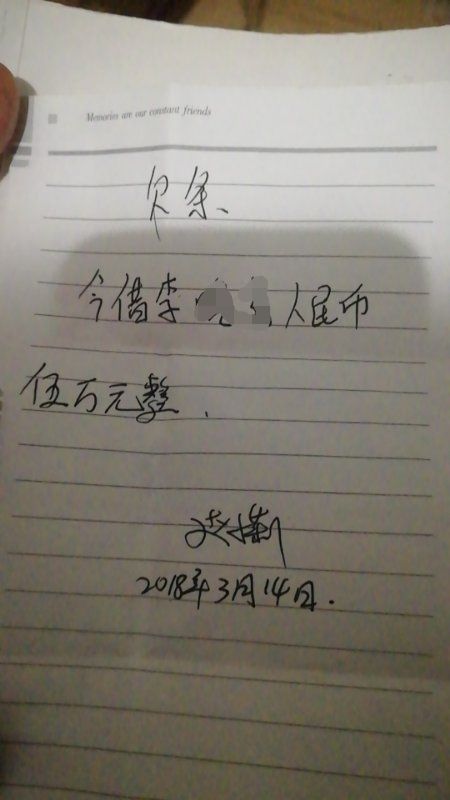 Memories are our constant friends
欠条
今借李 人民币
伍万元整.
2018年3月14日.